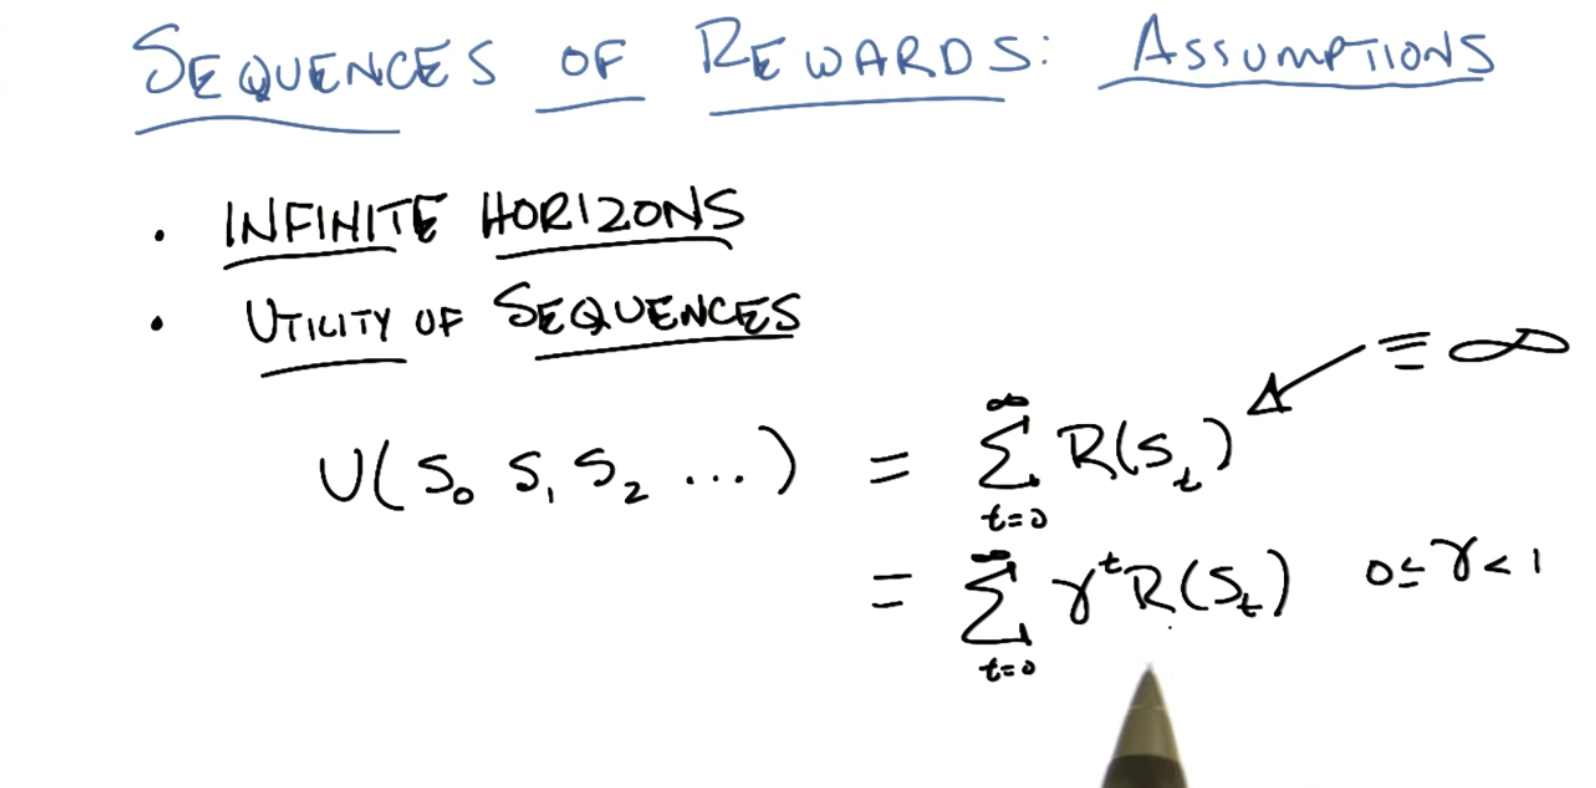 SEQUENCES OF REWARDS: ASSUMPTIONS
• INFINITE HORIZONS
• UTILITY OF SEQUENCES
≡ ∞
U(S₀ S₁ S₂ ...) = ∑_{t=0}^{∞} R(S_t)
= ∑_{t=0}^{∞} γ^t R(S_t) 0 ≤ γ < 1